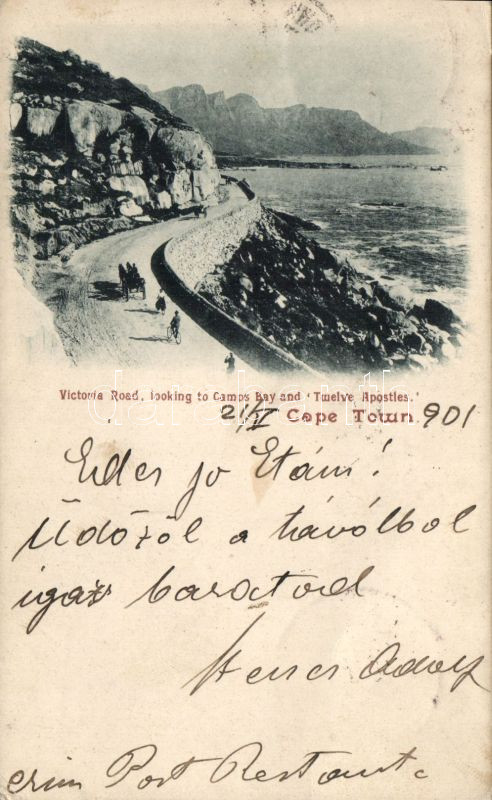 Victoria Road, looking to Camps Bay and 'Twelve Apostles.'
21/I Cape Town 901
Edes jo Etám!
Üdözöl a távólbol
igaz baratod
Adolf
Post Restant.